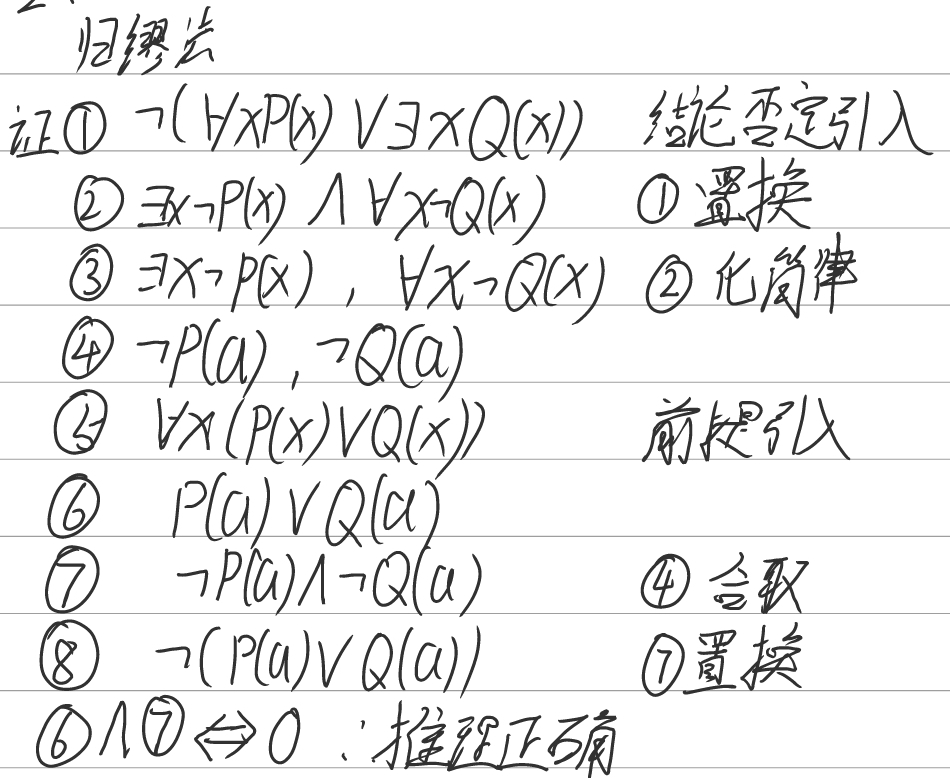 归谬法
证① ¬(∀xP(x) ∨∃xQ(x)) 结论否定引入
② ∃x¬P(x) ∧ ∀x¬Q(x) ① 置换
③ ∃x¬P(x) , ∀x¬Q(x) ② 化简律
④ ¬P(a) , ¬Q(a)
⑤ ∀x(P(x)∨Q(x)) 前提引入
⑥ P(a)∨Q(a)
⑦ ¬P(a)∧¬Q(a) ④ 合取
⑧ ¬(P(a)∨Q(a)) ⑦置换
⑥∧⑦⇔0 ∴推理正确